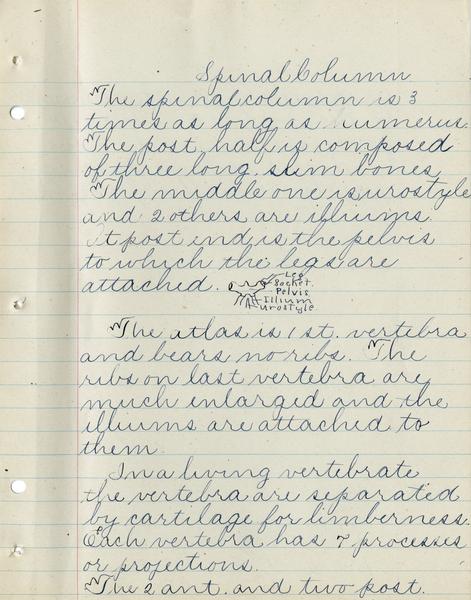 Spinal Column
The spinal column is 3
times as long as humerus.
The post. half is composed
of three long, slim bones.
The middle one is urostyle
and 2 others are illiums.
At post end is the pelvis
to which the legs are
attached.
Leg
Socket.
Pelvis
Illium
Urostyle
The atlas is 1st. vertebra
and bears no ribs. The
ribs on last vertebra are
much enlarged and the
illiums are attached to
them.
In a living vertebrate
the vertebra are separated
by cartilage for limberness.
Each vertebra has 7 processes
or projections.
The 2 ant. and two post.